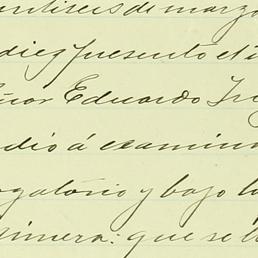 intiseis de marzo
diez presente el
ñor Eduardo
dió á examina
ogatorio y bajo la
rimera: que se ll